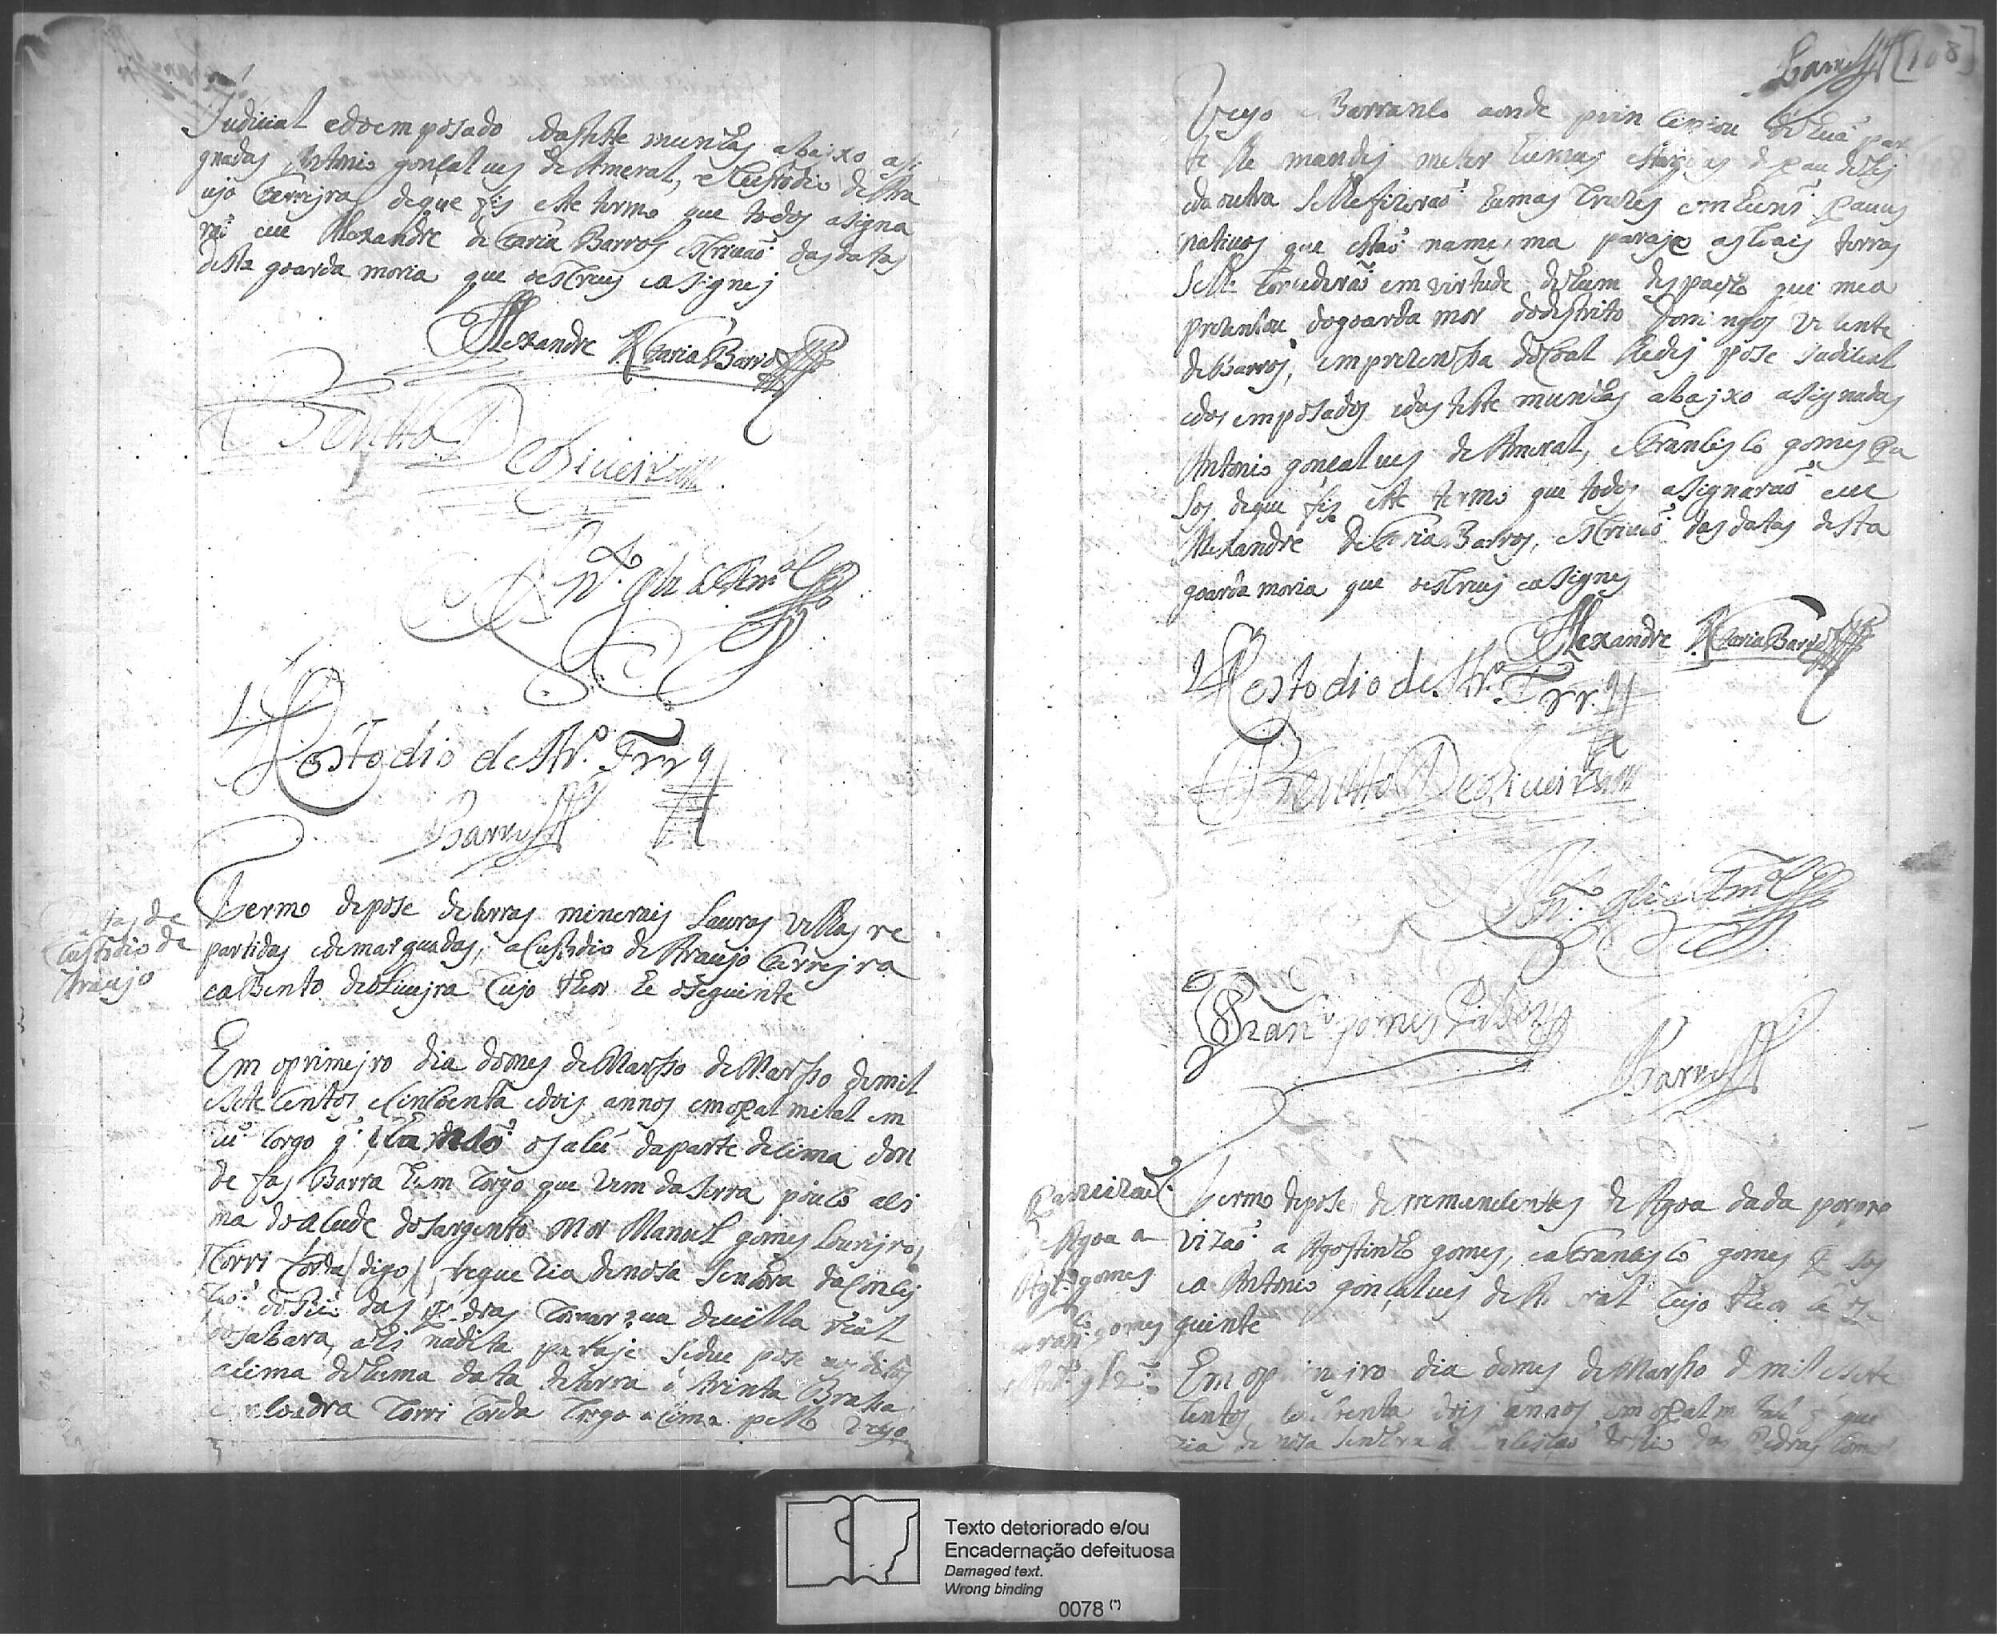 Judicial edoemposado edasteste munhas abajxo asi
gnadas Antonio gonçalves de Ameral, e Custodio de Ara
ujo Ferrejra de que fis este termo que todos asigna
rão eu Alexandre de Faria Barros escrivão das datas
desta goarda moria que oescrevj easignej
Alexandre de Faria Barros
Bentto De oliueira
Anto. glz de Amal
Costodio de Aro. Frra
Barros
Datas de
Custodio de
Araujo
Termo depose deterras minerais Lauras velhas re
partidas edemarquadas, aCustodio de Araujo Ferrejra
eaBento deolivejra Cujo theor he oseguinte
Em oprimejro dia domes de Marsso de Marsso demil
esete Centos eCincoenta edois annos emopalmital em
Corgo que osaluí daparte desima don
de fas Barra hum Corgo que vem da Serra pouco aSi
ma doaSude dosargento Mor Manoel gomes Lourejro,
Corri Corda (digo) freguezia denosa Senhora daConcej
ção dorio das Pedras Comarqua devilla rial
doSabara, ahi nadita peraje sedeu pose aos ditos
aSima dehuma data deterra de trinta Brassas
Corri Corda Corgo aSima pello veyo
Barros 108
Veyo Barranco aonde prinCipiou dehuã par
te lhe mandej meter humas estaquas depau delej
edaoutra selhefizerão humas Cruzes emhuns paaus
nativos que estão names,ma paraje asCoais terras
selhe Conçederão emvirtude dehum despacho que mea
prezentou dogoarda mor dodestrito Domingos viSente
deBarros, emprezensha doCoal lhedej pose Judicial
edos emposados edas teste munhas abajxo asignadas
Antonio gonçalves de Ameral, eFrancisco gomes Pa
sos deque fis este termo que todos asignarão eu
Alexandre deFaria Barros, escrivão das datas desta
goarda moria que oescrevj easignej
Alexandre de Faria Barros
Costodio de Aro. Frra
Bentto De oliueira
Anto. glz de Amal
Franco. gomes Passos
Barros
de Agoa a
Agto. gomes
Franco. gomes
Termo depose deremanecentes de Agoa dada porpro
vizão a Agostinho gomes, eaFrancisco gomes Pa sos
ea Antonio gonçalves de Ameral Cujo theor he ose
guinte
Em oprimeiro dia domes de Marsso demil esete
Centos eCincoenta edois annos em opalmital fregue
zia de nosa Senhora da ConCeisão dorio das Pedras Comar
Texto deteriorado e/ou
Encadernação defeituosa
Damaged text.
Wrong binding
0078 (*)